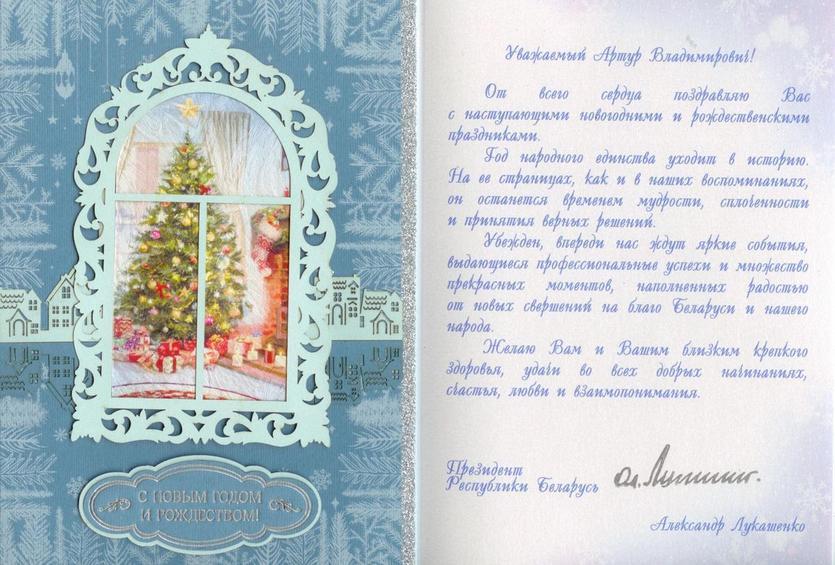 С НОВЫМ ГОДОМ
И РОЖДЕСТВОМ!
Уважаемый Артур Владимирович!
От всего сердца поздравляю Вас
с наступающими новогодними и рождественскими
праздниками.
Год народного единства уходит в историю.
На ее страницах, как и в наших воспоминаниях,
он останется временем мудрости, сплоченности
и принятия верных решений.
Убежден, впереди нас ждут яркие события,
выдающиеся профессиональные успехи и множество
прекрасных моментов, наполненных радостью
от новых свершений на благо Беларуси и нашего
народа.
Желаю Вам и Вашим близким крепкого
здоровья, удачи во всех добрых начинаниях,
счастья, любви и взаимопонимания.
Президент
Республики Беларусь
Александр Лукашенко